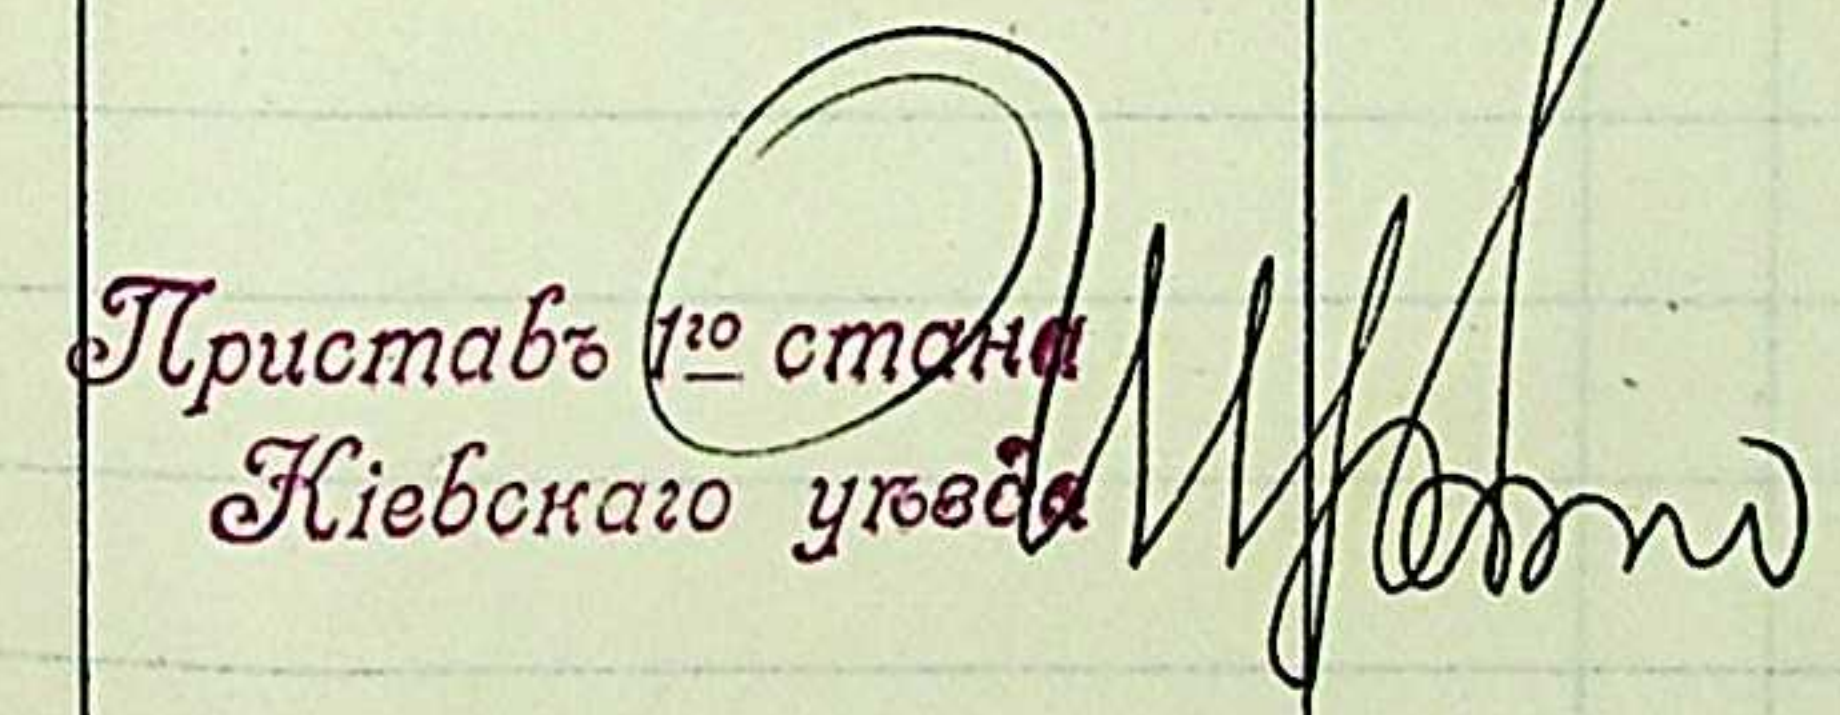 Приставъ 1го стана
Кіевскаго уѣзда